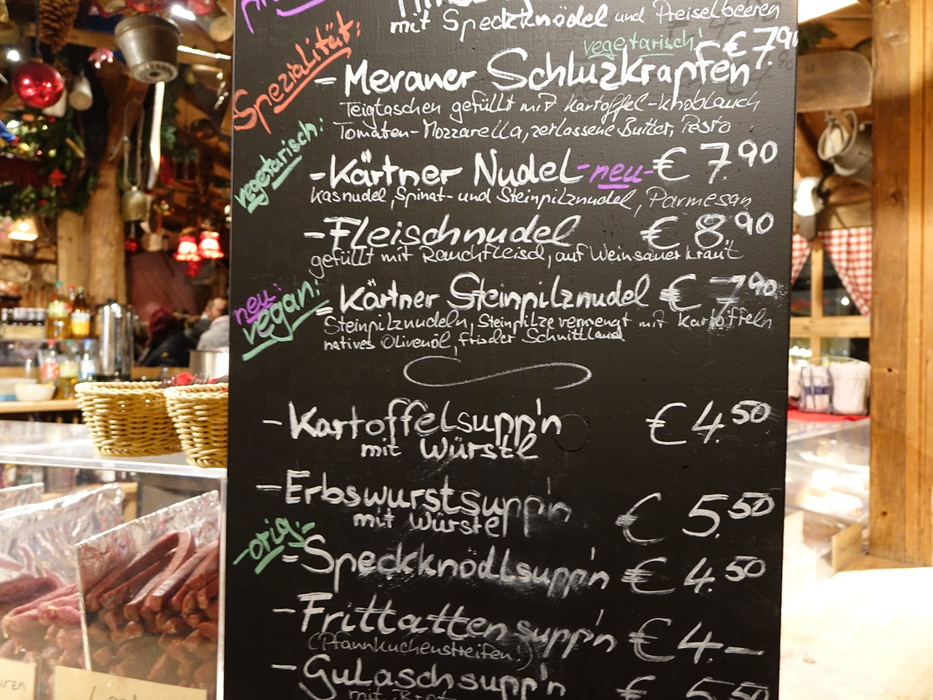 mit Speckknödel und Preiselbeeren
Spezialität:
vegetarisch!
€ 7.90
- Meraner Schluzkrapfen
Teigtaschen gefüllt mit Kartoffel-Knoblauch
Tomaten-Mozzarella, zerlassene Butter, Pesto
vegetarisch:
- Kärtner Nudel -neu- € 7.90
Kasnudel, Spinat- und Steinpilznudel, Parmesan
- Fleischnudel € 8.90
gefüllt mit Rauchfleisch, auf Weinsauerkraut
neu:
vegan:
= Kärtner Steinpilznudel € 7.90
Steinpilznudeln, Steinpilze vermengt mit Kartoffeln
natives Olivenöl, frischer Schnittlauch
- Kartoffelsupp'n € 4.50
mit Würstl
- Erbswurstsupp'n € 5.50
mit Würstel
-orig:-
= Speckknödlsupp'n € 4.50
- Frittattensupp'n € 4.-
(Pfannkuchenstreifen)
- Gulaschsupp'n € 5.50
mit Brot